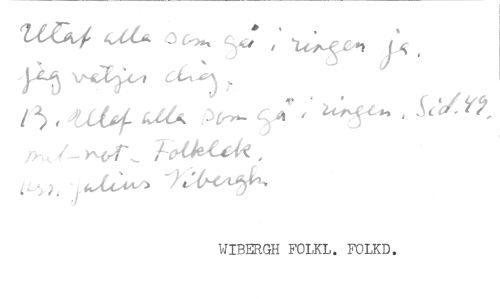 Utaf alla som gå i ringen ja,
jag väljer dig,
13. Utaf alla som gå i ringen. Sid. 49.
mel-not- Folklek.
Julius Vibergh
WIBERGH FOLKL. FOLKD.